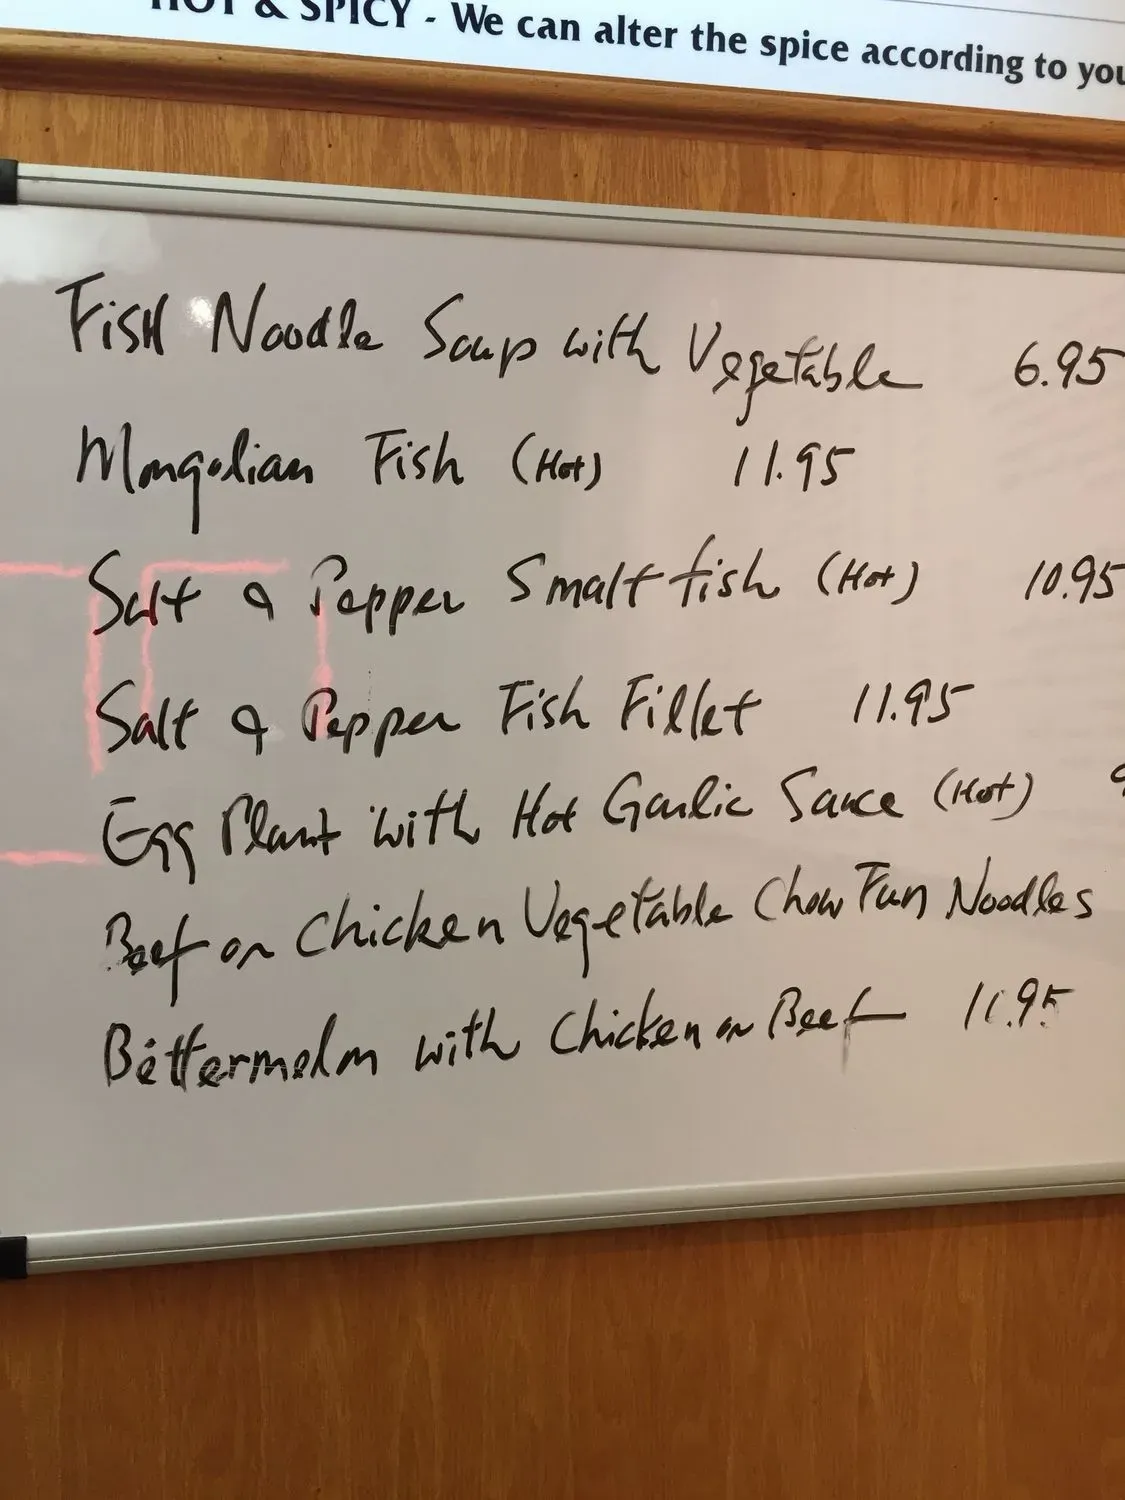 HOT & SPICY - We can alter the spice according to you
Fish Noodle Soup with Vegetable 6.95
Mongolian Fish (Hot) 11.95
Salt & Pepper Small fish (Hot) 10.95
Salt & Pepper Fish Fillet 11.95
Egg Plant with Hot Garlic Sauce (Hot) 9
Beef or Chicken Vegetable Chow Fun Noodles
Bittermelm with Chicken or Beef 11.95